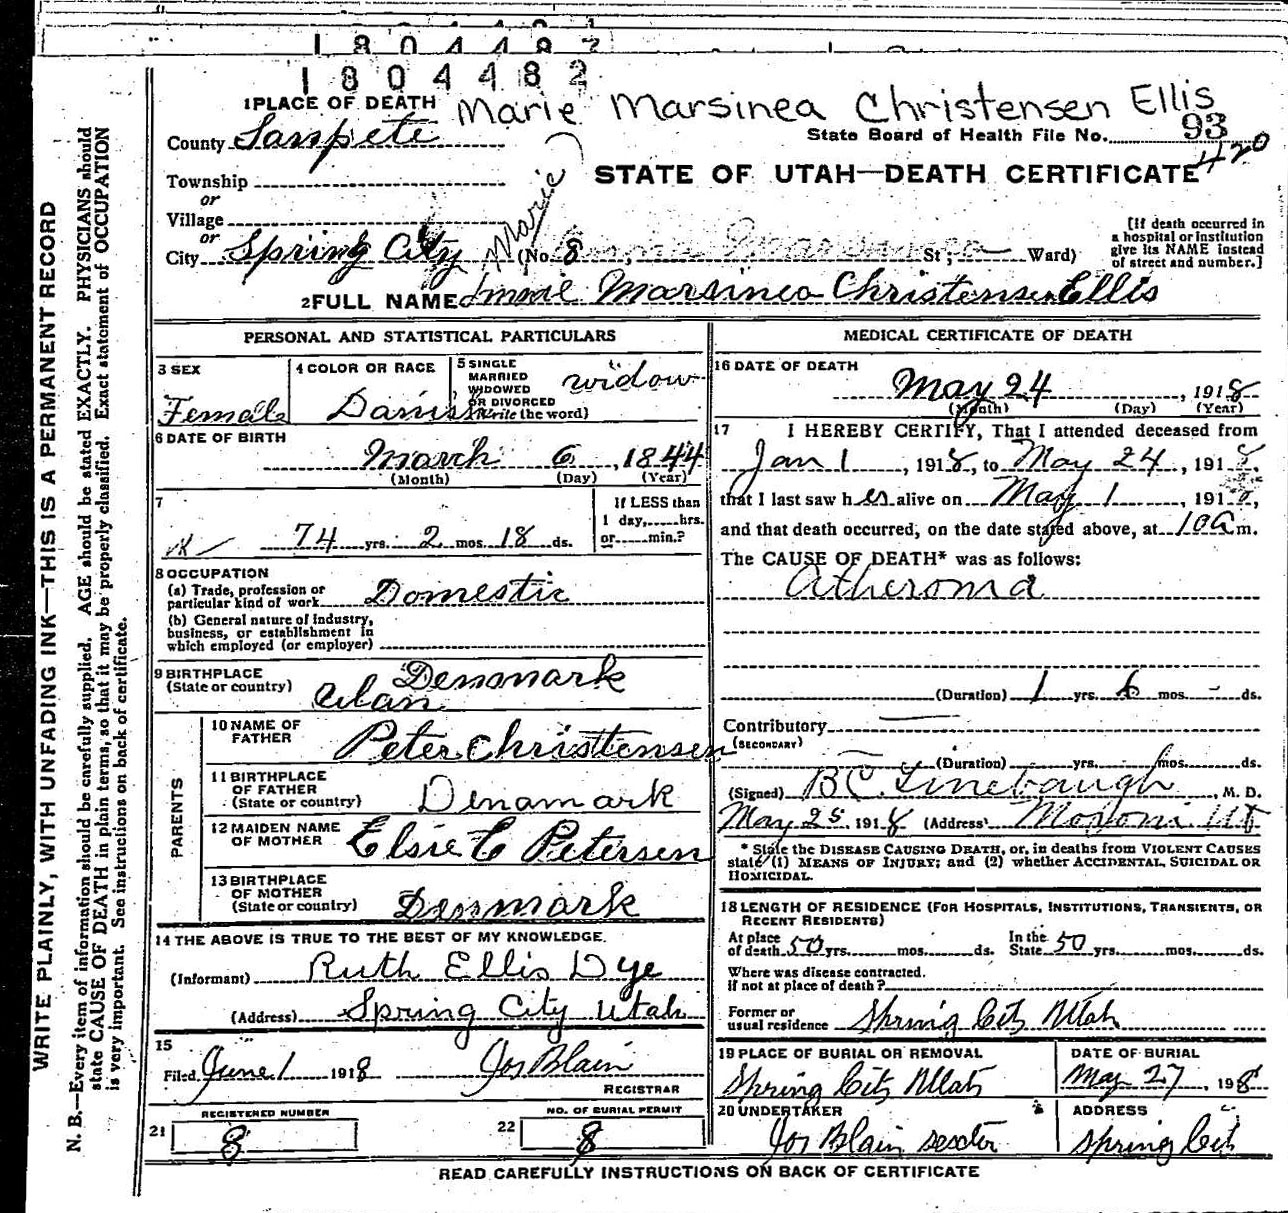 1804482
1804482
1 PLACE OF DEATH Marie Marsinea Christensen Ellis
County Sanpete State Board of Health File No. 93
420
Township
or
Village
or
STATE OF UTAH—DEATH CERTIFICATE
Marie
City Spring City (No. 8, St; Ward)
[If death occurred in
a hospital or institution
give its NAME instead
of street and number.]
2 FULL NAME Marsinea Christensen Ellis
PERSONAL AND STATISTICAL PARTICULARS
3 SEX
Female
4 COLOR OR RACE
Danish
5 SINGLE
MARRIED
WIDOWED
OR DIVORCED
(Write the word)
widow
6 DATE OF BIRTH
March 6, 1844
(Month) (Day) (Year)
7
74 yrs. 2 mos. 18 ds.
If LESS than
1 day, hrs.
or min.?
8 OCCUPATION
(a) Trade, profession or
particular kind of work Domestic
(b) General nature of Industry,
business, or establishment in
which employed (or employer)
9 BIRTHPLACE
(State or country) Denmark
PARENTS
10 NAME OF
FATHER Peter Christtensen
11 BIRTHPLACE
OF FATHER
(State or country) Dinamark
12 MAIDEN NAME
OF MOTHER Elsie C Petersen
13 BIRTHPLACE
OF MOTHER
(State or country) Denmark
14 THE ABOVE IS TRUE TO THE BEST OF MY KNOWLEDGE.
(Informant) Ruth Ellis Dye
(Address) Spring City Utah
15
Filed June 1 1918 Jos Blain
REGISTRAR
REGISTERED NUMBER
21 8
NO. OF BURIAL PERMIT
22 8
MEDICAL CERTIFICATE OF DEATH
16 DATE OF DEATH
May 24, 1918
(Month) (Day) (Year)
17 I HEREBY CERTIFY, That I attended deceased from
Jan 1, 1918, to May 24, 1918,
that I last saw h er alive on May 1, 191
and that death occurred, on the date stated above, at 10 a m.
The CAUSE OF DEATH* was as follows:
Atheroma
(Duration) 1 yrs. 6 mos. - ds.
Contributory
(SECONDARY)
(Duration) yrs. mos. ds.
(Signed) B C Linebaugh, M. D.
May 25, 1918 (Address) Moroni Ut
* State the DISEASE CAUSING DEATH, or, in deaths from VIOLENT CAUSES
state (1) MEANS OF INJURY; and (2) whether ACCIDENTAL, SUICIDAL OR
HOMICIDAL.
18 LENGTH OF RESIDENCE (FOR HOSPITALS, INSTITUTIONS, TRANSIENTS, OR
RECENT RESIDENTS)
At place
of death 50 yrs. mos. ds. In the
State 50 yrs. mos. ds.
Where was disease contracted.
If not at place of death?
Former or
usual residence Spring City Utah
19 PLACE OF BURIAL OR REMOVAL
Spring City Utah
DATE OF BURIAL
May 27, 1918
20 UNDERTAKER
Jos Blain sexton
ADDRESS
Spring City
READ CAREFULLY INSTRUCTIONS ON BACK OF CERTIFICATE
WRITE PLAINLY, WITH UNFADING INK—THIS IS A PERMANENT RECORD
N. B.—Every item of information should be carefully supplied. AGE should be stated EXACTLY. PHYSICIANS should
state CAUSE OF DEATH in plain terms, so that it may be properly classified. Exact statement of OCCUPATION
is very important. See instructions on back of certificate.